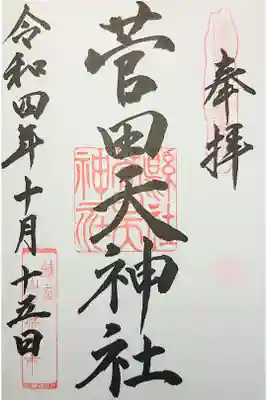 奉拝
菅田天神社
令和四年十月十五日